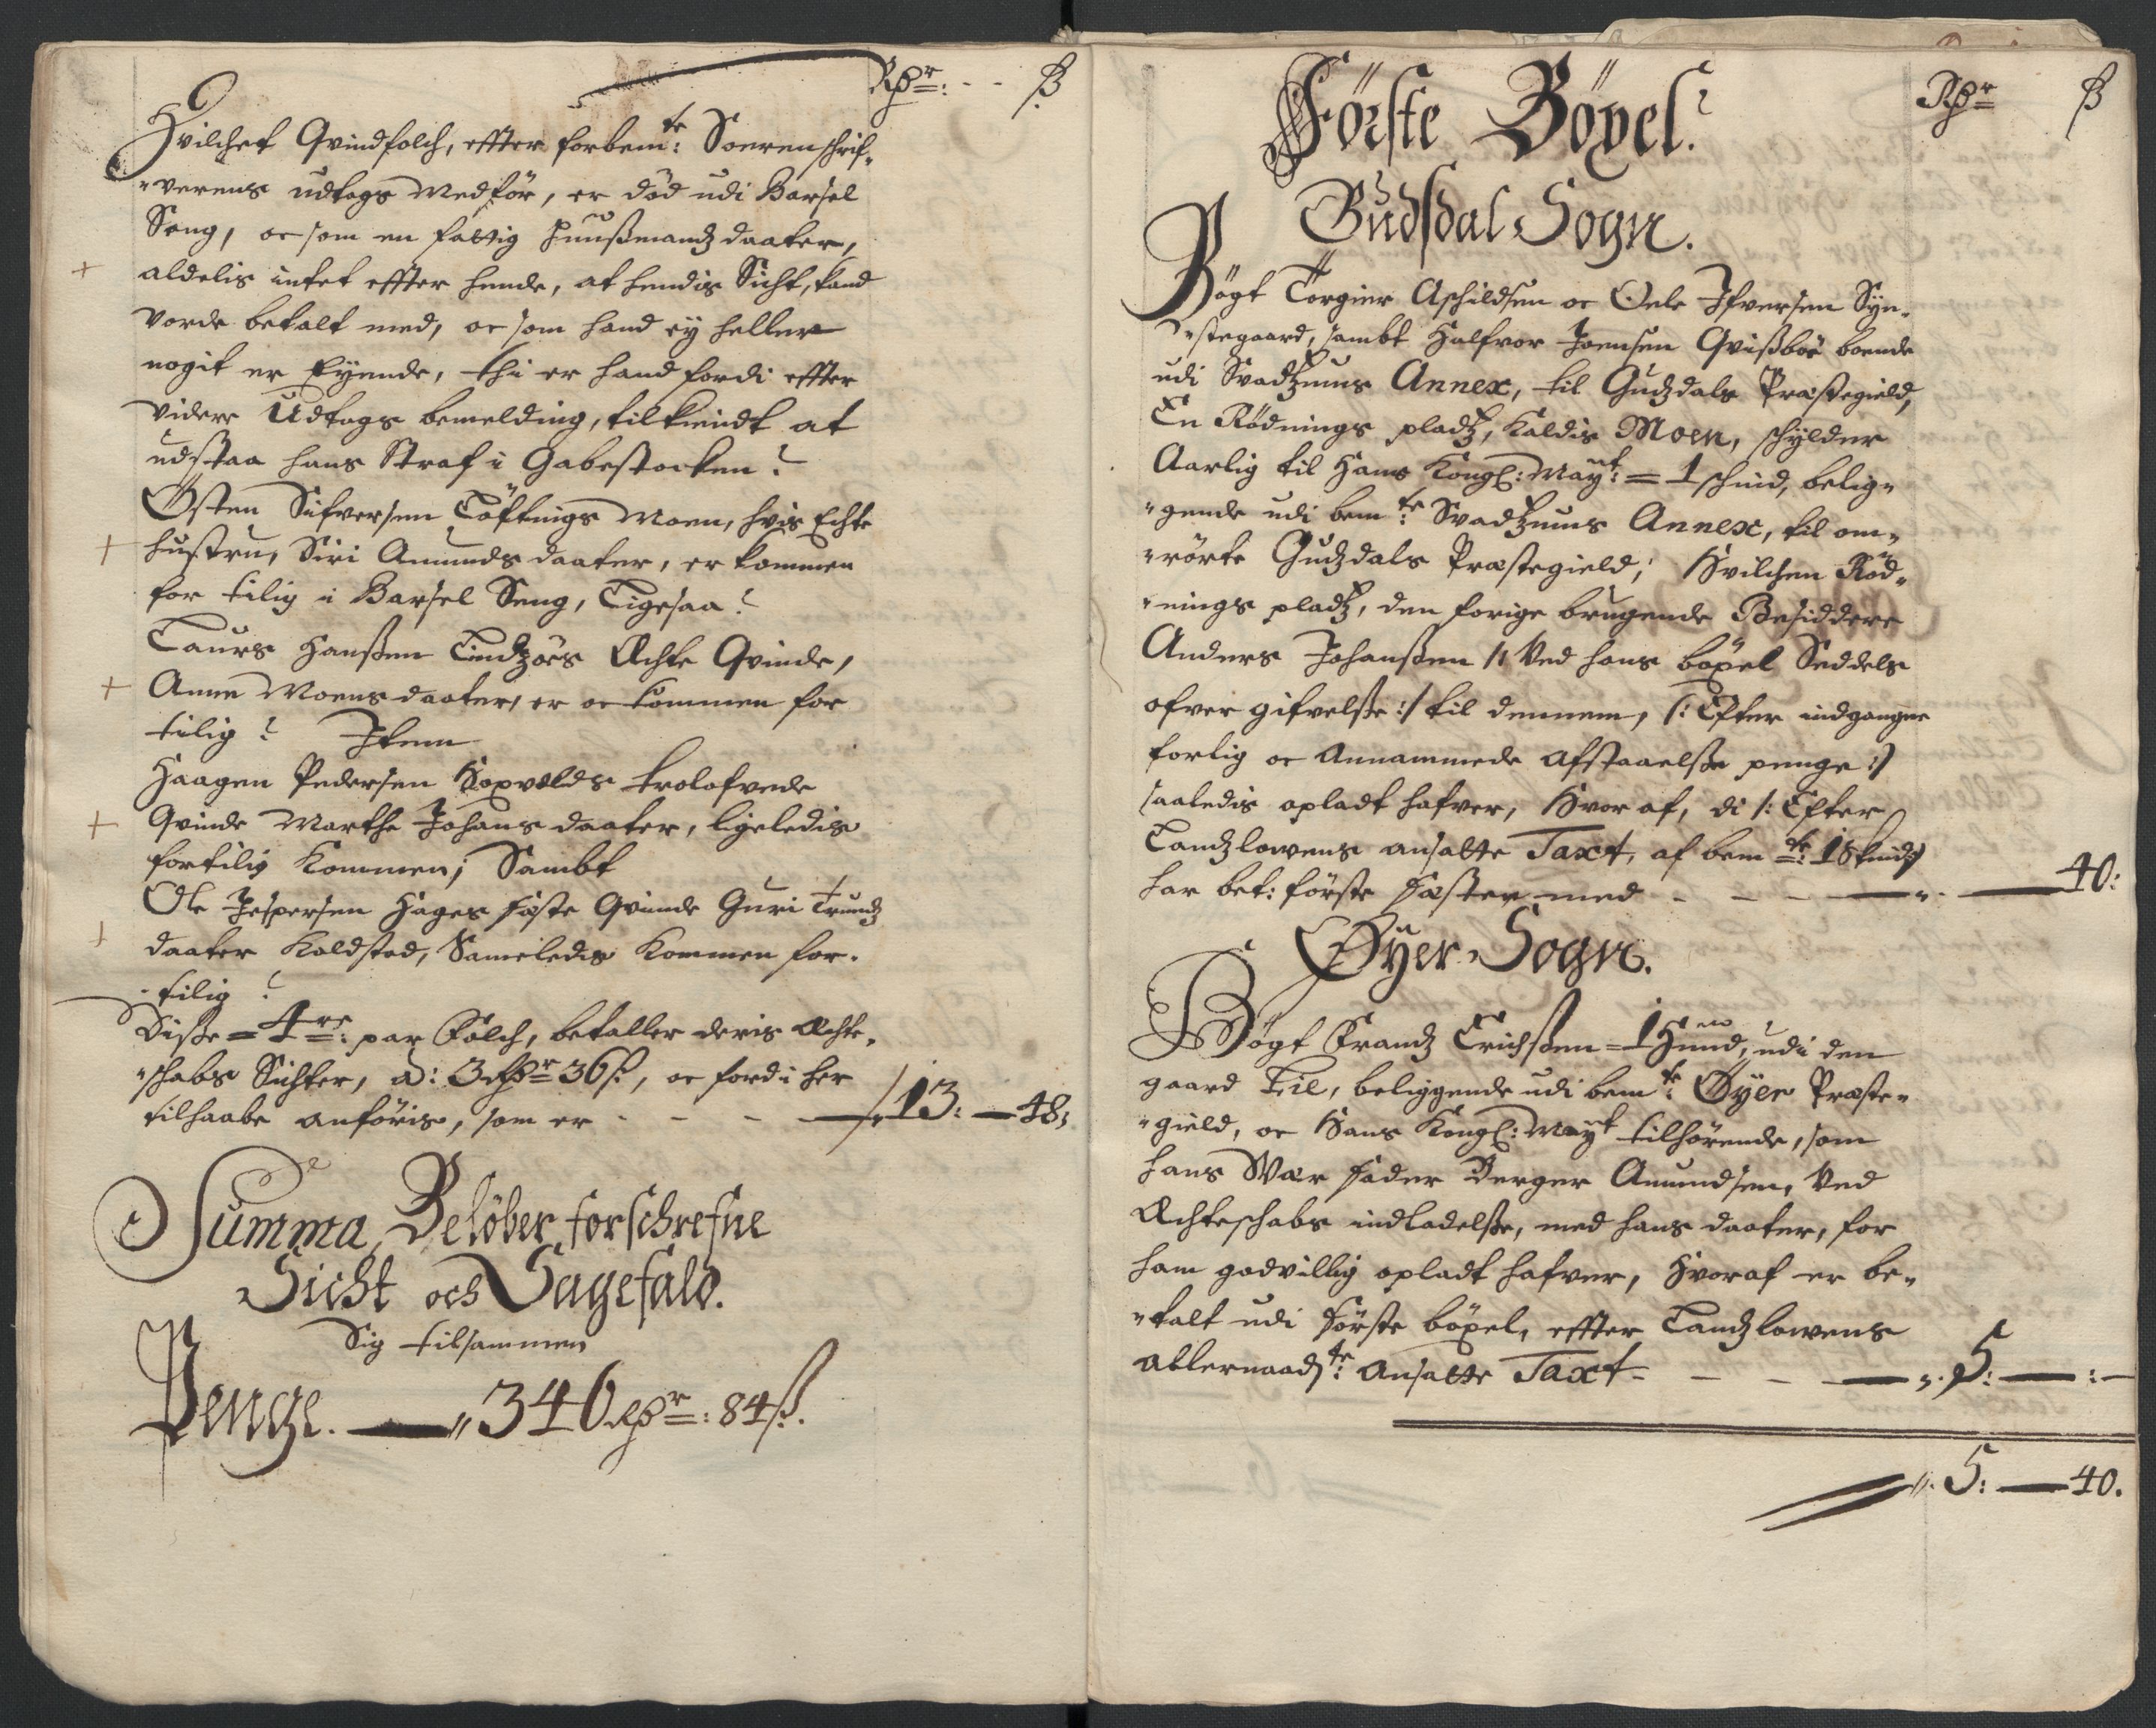 Rdr: - - ß
Hvilchet Qvindfolch, effter forbemte: Sorenschrif„
„verens udtogs Medför, er död udi Barsel
Seng, oc som en fattig Huußmandz daater,
aldelis intet effter hende, at hendis Sicht, kand
vorde betalt med, oc som hand ey heller
nogit er Eyende, thi er hand fordi effter
videre Udtogs bemelding, tilkiendt at
udstaa hans Straf i Gabestocken?
Østen Sifversen Töftings Moen, hvis Echte
hustru, Siri Amunds daater, er kommen
for tilig i Barsel Seng, Ligesaa?
Laurs Hanßen Lindzöes Achte Qvinde,
Anne Moens daater, er oc kommen for
tilig? Item
Haagen Pedersen Hoxvolds trolofvede
Qvinde Marthe Johans daater, ligeledis
fortilig Kommen; Sambt
Ole Jespersen Hages fäste Qvinde Guri Trundz
daater Kaldstad, Sameledis Kommen for„
„tilig?
Disse = 4re: par Folch, betaller deris Achte„
„schabs Sichter, a: 3 Rdr 36ß, oc fordi her
tilhaabe anföris, som er - - - 13: — 48;
Summa, Belöber forschrefne
Sicht och Sagefald.
Sig tilsammen
Penge. — „340 Rdr: 84ß.
Rdr ß
Förste Böxel?
Gudsdal Sogn.
Bögt Torgier Aschildsen oc Oele Ifversen Syn„
„stegaard, sambt Halfvor Joensen Qvißböe boende
udi Svadzums Annex, til Gudzdals Præstegield,
En Rödnings pladz, Kaldis Moen, schylder
Aarlig til Hans Kongl: Mayt: = 1 schind, belig„
„gende udi bemte: Svadzums Annex, til om„
„rörte Gudzdals Præstegield; Hvilchen Röd„
„nings pladz, den forige brugende Besiddere
Anders Johanßen /: Ved hans böxel Seddels
ofver gifvelße :/ til dennem, /: Efter indgangne
forlig oc Annammede Afstaaelße penge :/
saaledis opladt hafver, Hvor af, di /: Efter
Landzlowens ansatte Taxt, af bemte: 1 Skind :/
har bet: förste fæsten med - - - — „ — 40:
Øyer Sogn.
Bögt Frandz Erichßen = 1 Hund, udi den
gaard Lie, beliggende udi bemte: Øyer Præste„
„gield, oc Hans Kongl: Mayt tilhörende, som
hans Vær fader Berger Amundsen, Ved
Achteschabs indladelße, med hans daater, for
ham godvillig opladt hafver, Hvoraf er be„
„talt udi förste böxel, effter Landzlowens
allernaadste: Ansatte Taxt - - - — „. 5: — : —
„. 5: — 40.